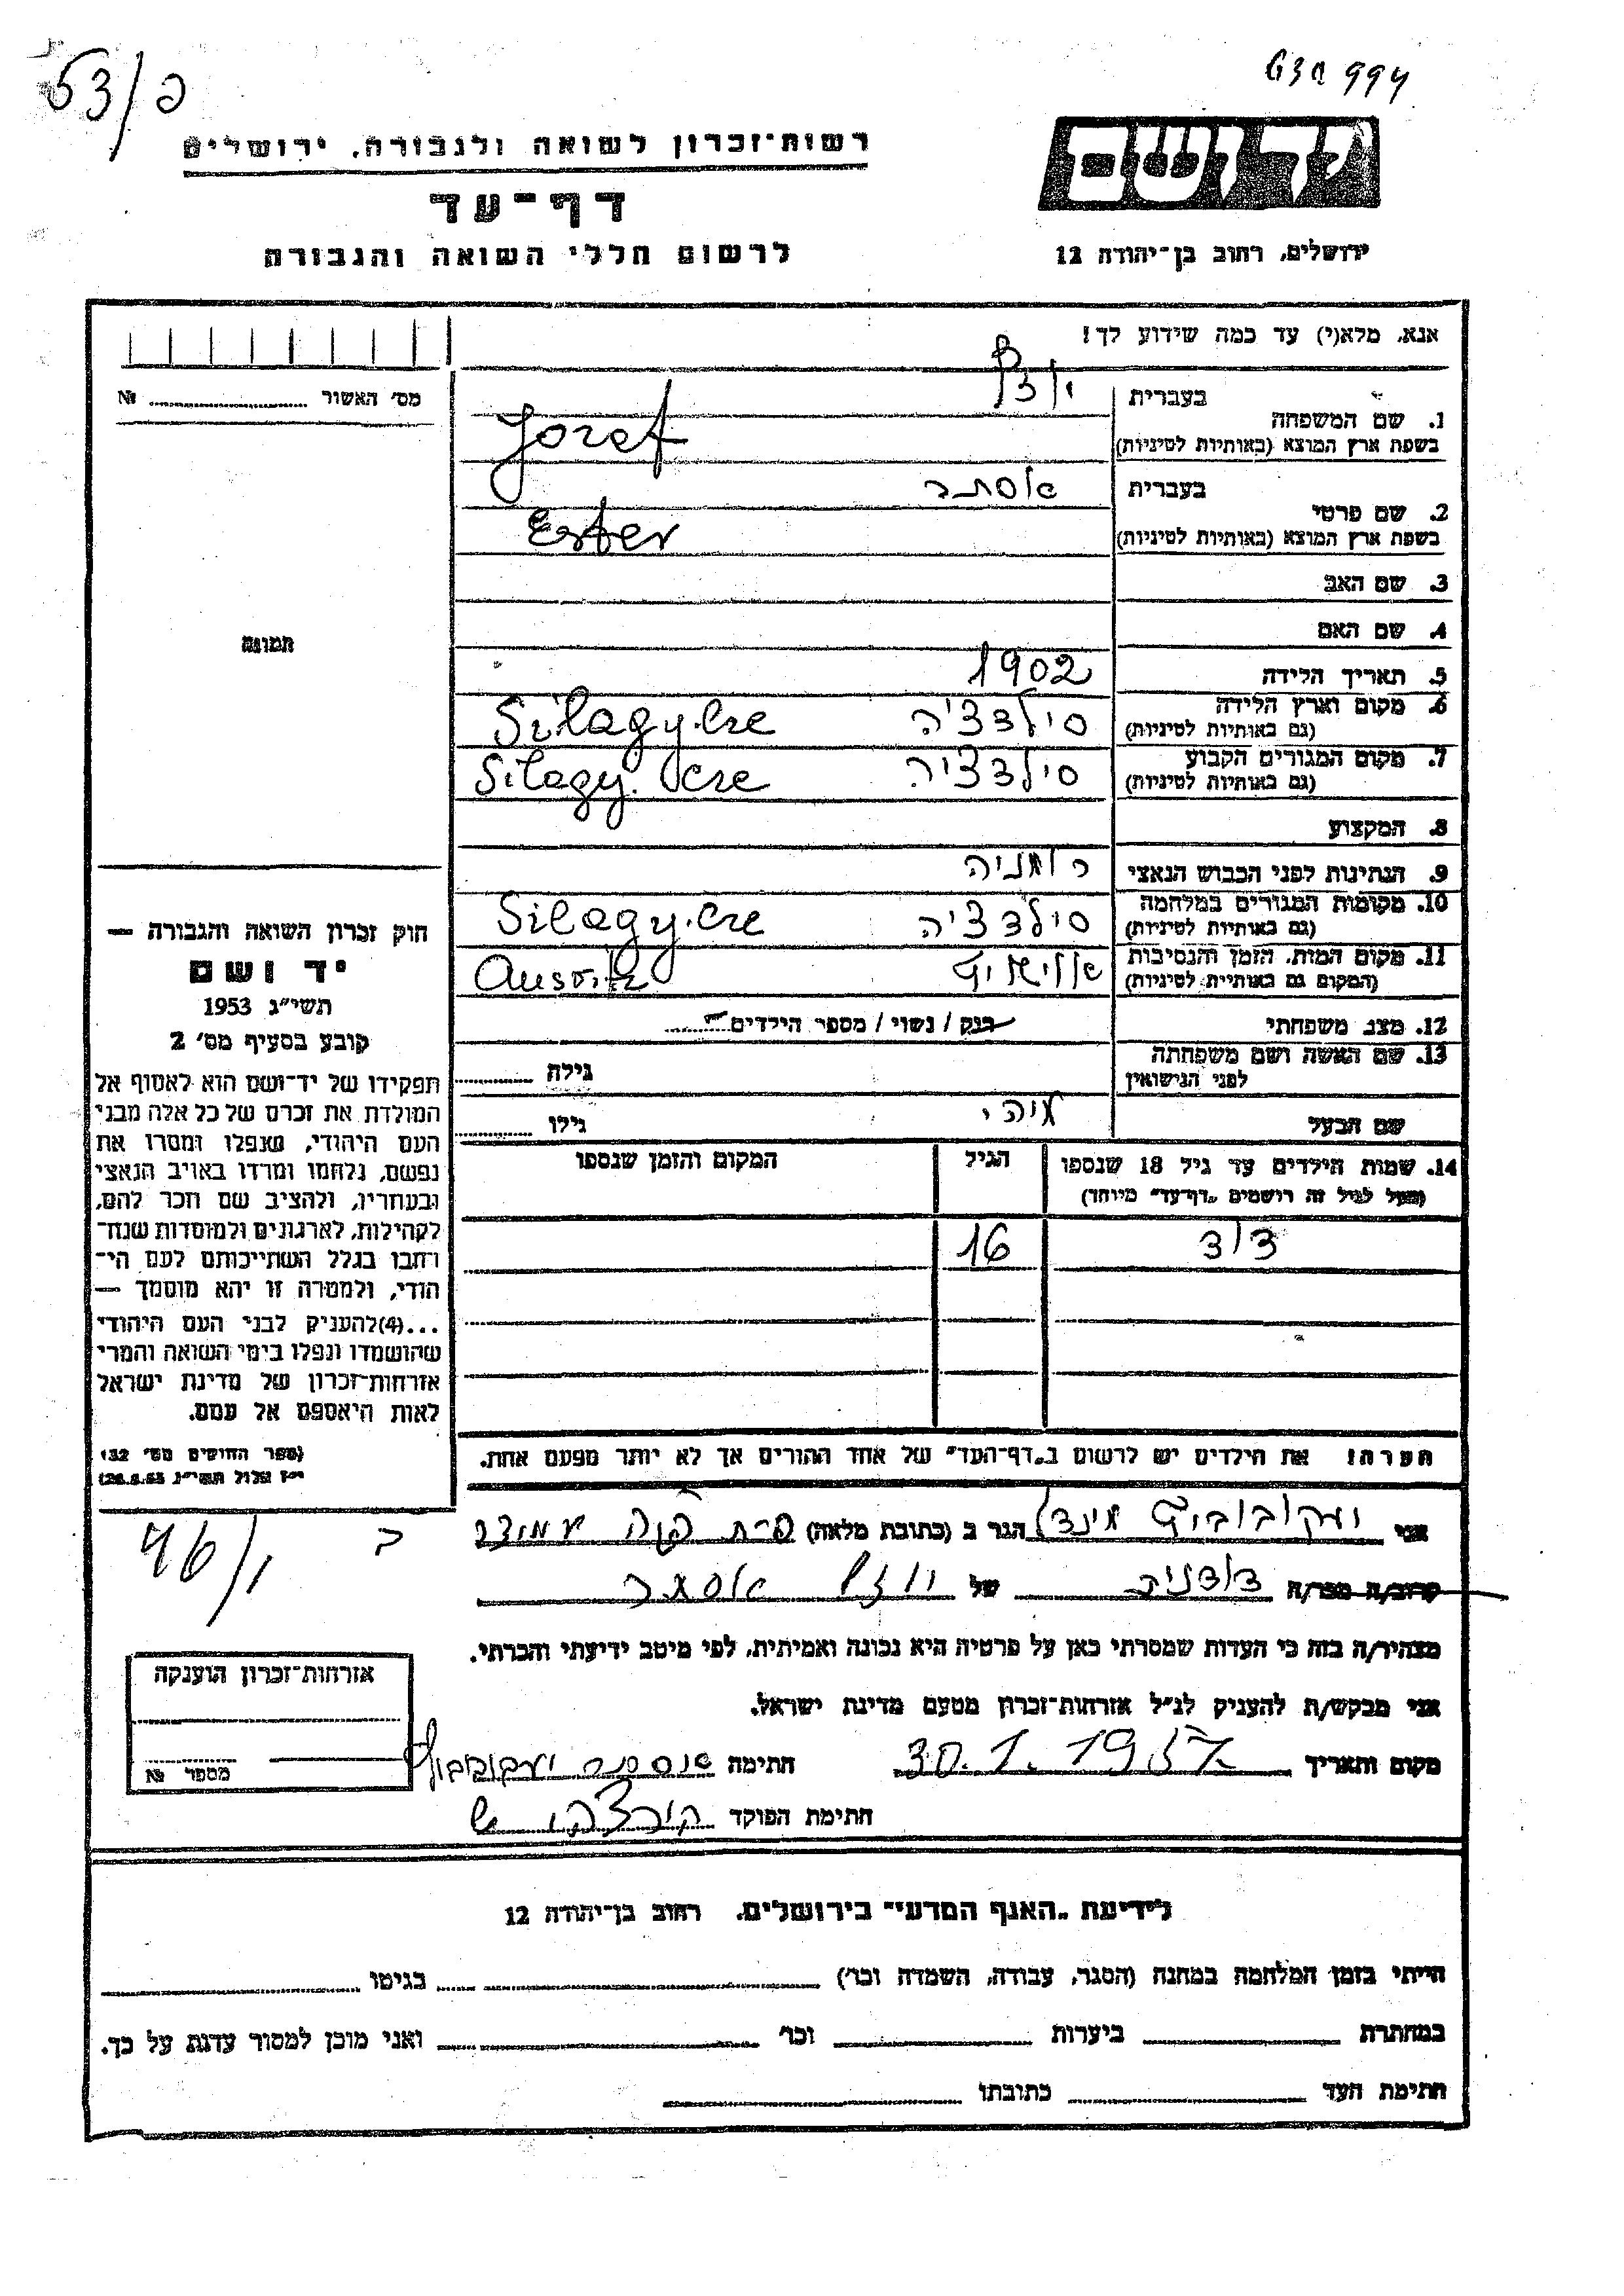 53/פ
994
רשות־זכרון לשואה ולגבורה, ירושלים
יד ושם
דף־עד
לרשום חללי השואה והגבורה
ירושלים, רחוב בן־יהודה 12
אנא, מלא(י) עד כמה שידוע לך!
מס' האשור № ........
בעברית
1. שם המשפחה
בשפת ארץ המוצא (באותיות לטיניות) Jozef
בעברית אסתר
2. שם פרטי
בשפת ארץ המוצא (באותיות לטיניות) Ester
3. שם האב
4. שם האם
תמונה
5. תאריך הלידה 1902
6. מקום וארץ הלידה
(גם באותיות לטיניות) סילדציה Silagy.cze
7. מקום המגורים הקבוע
(גם באותיות לטיניות) סילדציה Silagy. cze
8. המקצוע
9. הנתינות לפני הכבוש הנאצי רומניה
10. מקומות המגורים במלחמה
(גם באותיות לטיניות) סילדציה Silagy.cze
11. מקום המות, הזמן והנסיבות
(המקום גם באותיות לטיניות) אושויץ Ausvitz
12. מצב משפחתי רוק / נשוי / מספר הילדים
13. שם האשה ושם משפחתה
לפני הנישואין גילה
שם הבעל גילו
14. שמות הילדים עד גיל 18 שנספו הגיל המקום והזמן שנספו
(מעל לגיל זה רושמים "דף־עד" מיוחד)
דוד 16
הערה! את הילדים יש לרשום ב"דף־העד" של אחד ההורים אך לא יותר מפעם אחת.
חוק זכרון השואה והגבורה —
יד ושם
תשי"ג 1953
קובע בסעיף מס' 2
תפקידו של יד־ושם הוא לאסוף אל
המולדת את זכרם של כל אלה מבני
העם היהודי, שנפלו ומסרו את
נפשם, נלחמו ומרדו באויב הנאצי
ובעוזריו, ולהציב שם וזכר להם,
לקהילות, לארגונים ולמוסדות שנח־
רבו בגלל השתייכותם לעם הי־
הודי, ולמטרה זו יהא מוסמך —
...(4) להעניק לבני העם היהודי
שהושמדו ונפלו בימי השואה והמרי
אזרחות־זכרון של מדינת ישראל
לאות היאספם אל עמם.
(ספר החוקים מס' 132,
י"ז אלול תשי"ג, 28.8.53)
46/1 כ
אני יעקובוביץ הגר ב (כתובת מלאה)
קרוב/ה מכר/ה דודניה של יוזף אסתר
מצהיר/ה בזה כי העדות שמסרתי כאן על פרטיה היא נכונה ואמיתית, לפי מיטב ידיעתי והכרתי.
אני מבקש/ת להעניק לנ"ל אזרחות־זכרון מטעם מדינת ישראל.
מקום ותאריך 30.1.1957 חתימה
חתימת הפוקד
אזרחות־זכרון הוענקה
מספר №
לידיעת "האגף המדעי" בירושלים, רחוב בן־יהודה 12
הייתי בזמן המלחמה במחנה (הסגר, עבודה, השמדה וכו') בגיטו
במחתרת ביערות וכו' ואני מוכן למסור עדות על כך.
חתימת העד כתובתו